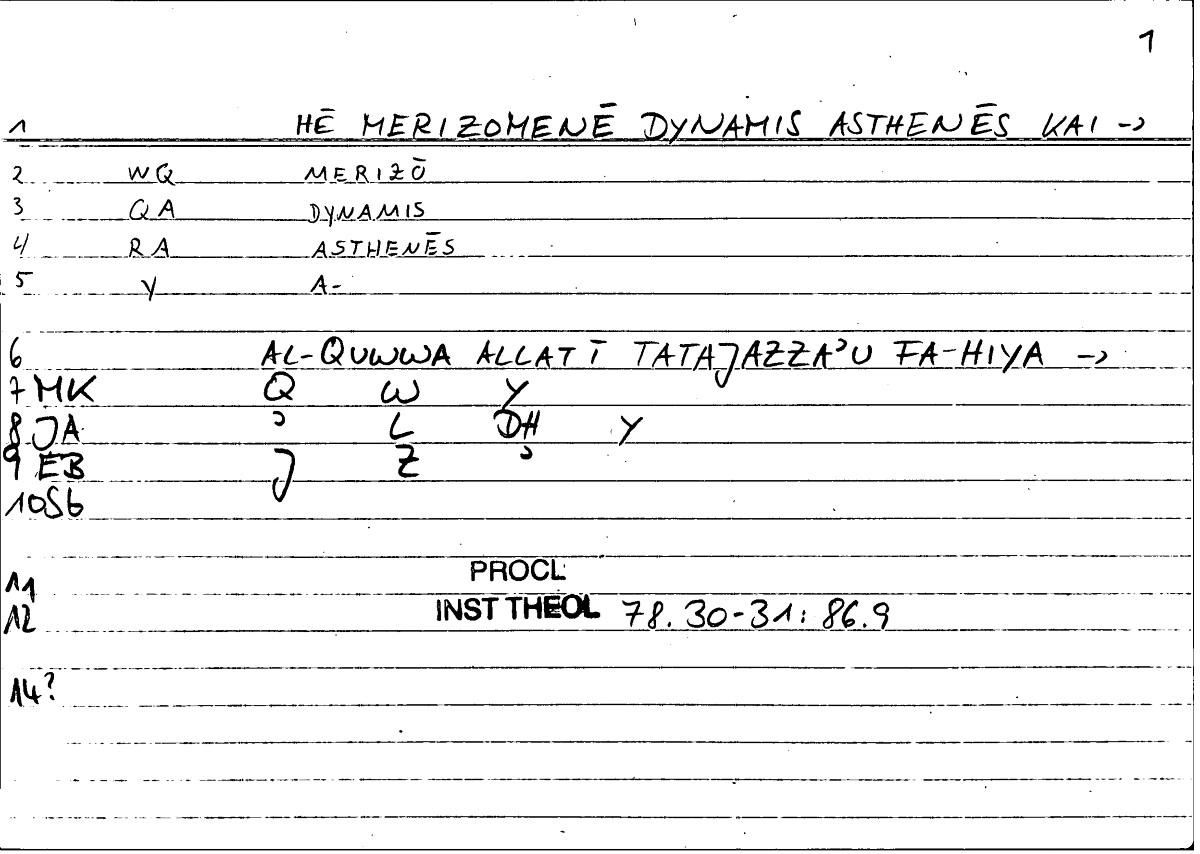 1
1 HĒ MERIZOMENĒ DYNAMIS ASTHENĒS KAI →
2 WQ MERIZŌ
3 QA DYNAMIS
4 RA ASTHENĒS
5 Y A-
6 AL-QUWWA ALLATĪ TATAJAZZAʾU FA-HIYA →
7 MK Q W Y
8 JA ʾ L DH Y
9 EB J Z ʾ
10 Sb
11 PROCL
12 INST THEOL 78.30-31: 86.9
14?